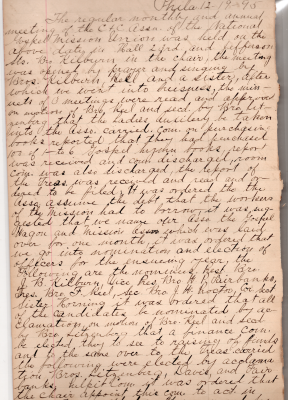 Phila 12/19-95
The regular monthly and annual
meeting of the C.C. Assn. of the National
Gospel Mission Union was held on the
above date, in Hall 23rd, and Jefferson
Sts. Bro Kilburn in the chair, the meeting
was opened by prayer and singing by
Bros. Kilburn, Keel and a sister, after
which we went into business, the min-
uets of 3 meetings were read, and approved
on motion of Bro Keel and sec. by Bro
that the ladies be taken
into the Asso. carried. Com. on purchasing
books reported that they had purchased
Gospel Hymn books, report
was received and com. discharged, room
com. was also discharged, the report of
the Treas. was received and
to be filed, It was ordered that the
Asso. assume the debt that the workers
of the mission had to borrow, it was sug-
gested that we name our Asso the Gospel
Wagon and Mission Assn which was laid
over for one month, it was ordered that
we go into nomination and election of
officers for the ensueing year, the
following are the nomenees, Pres. Bro
A. B. Kilburn, Vice Pres Bro H. Fairbanks,
Treas. Bro C. Keel, Sec Bro W. Norton, Asst
Sister Horning. It was ordered that all
of the candidates be nominated by ac-
clamation, on motion of Bro Keel and sec
Bro that a finance com.
be elected, they to see to raising of funds
and to turn same over to the Treas. carried
the following were elected by acclama-
tion, Bros. Davis, and Fair
banks, it was ordered that
the Chair appoint this com. to act in